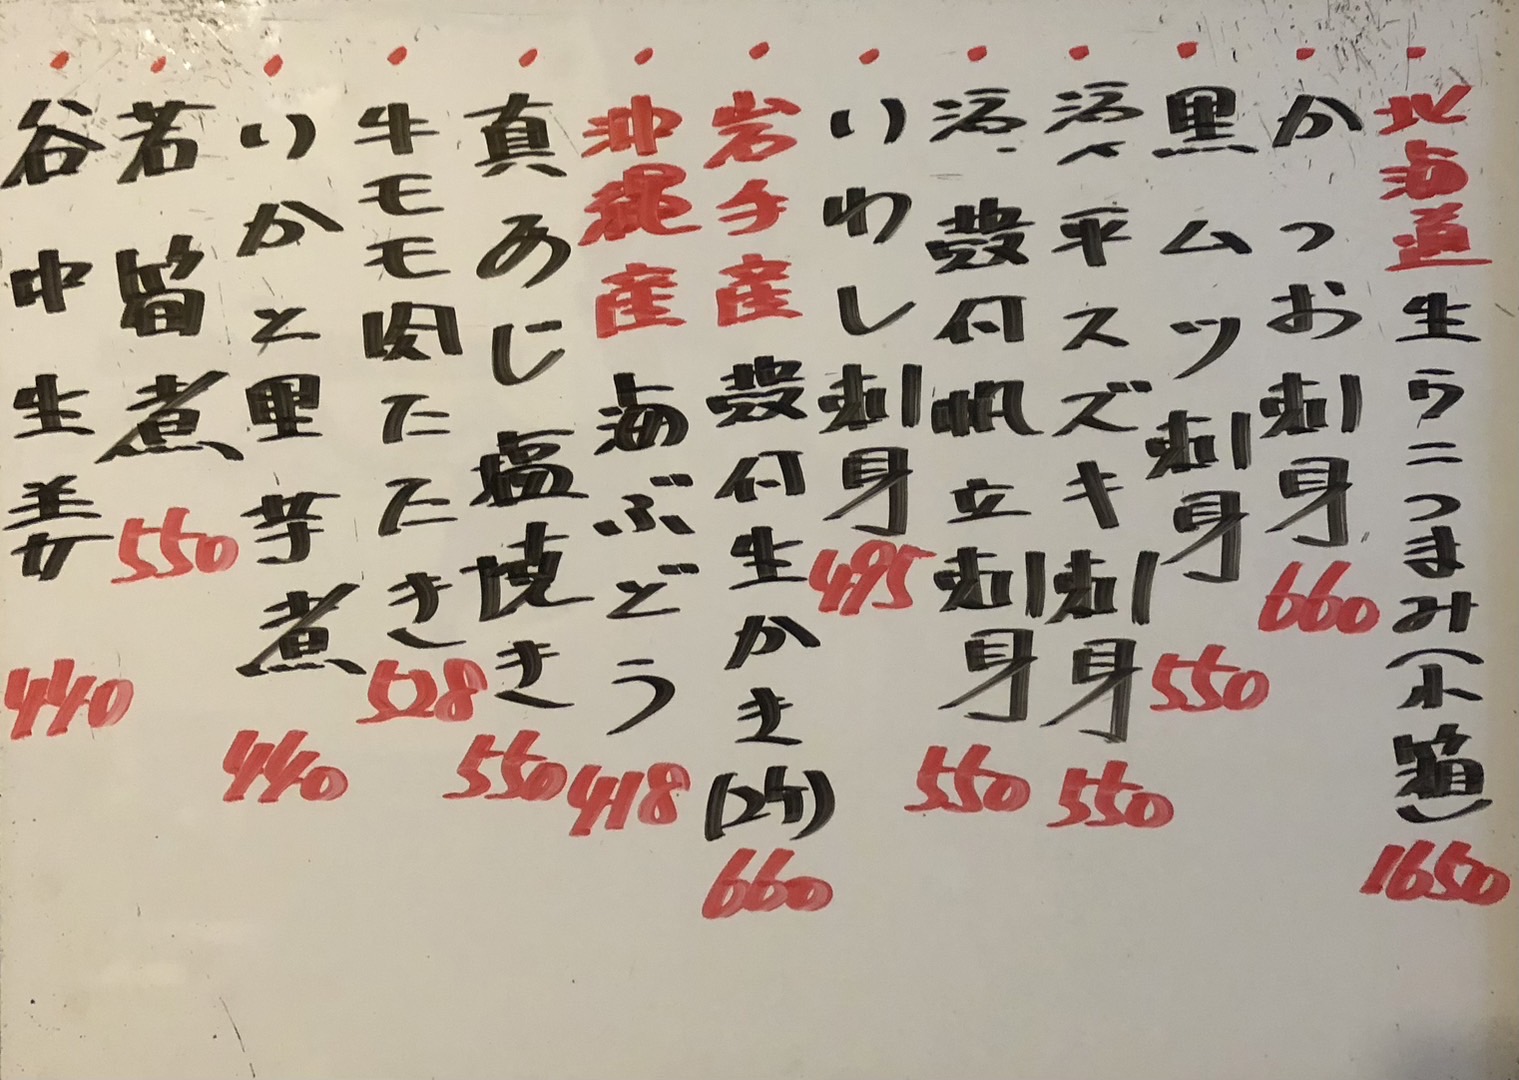 ・北海道生ウニつまみ(小箱) 1650
・かつお刺身 660
・黒ムツ刺身 550
・活〆平スズキ刺身 550
・活殻付帆立刺身 550
・いわし刺身 495
・岩手産殻付生かき(2ケ) 660
・沖縄産海ぶどう 418
・真あじ塩焼き 550
・牛モモ肉たたき 528
・いかと里芋煮 440
・若筍煮 550
・谷中生姜 440